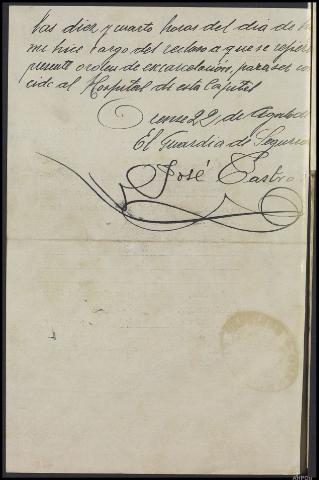 las diez y cuarto horas del dia de h
me hice cargo del recluso a que se refiere
presente orden de excarcelación, para ser con
cido al Hospital de esta Capital
Orense 22 de Agosto de
El Guardia de Segurid
José Castro
AHPOu